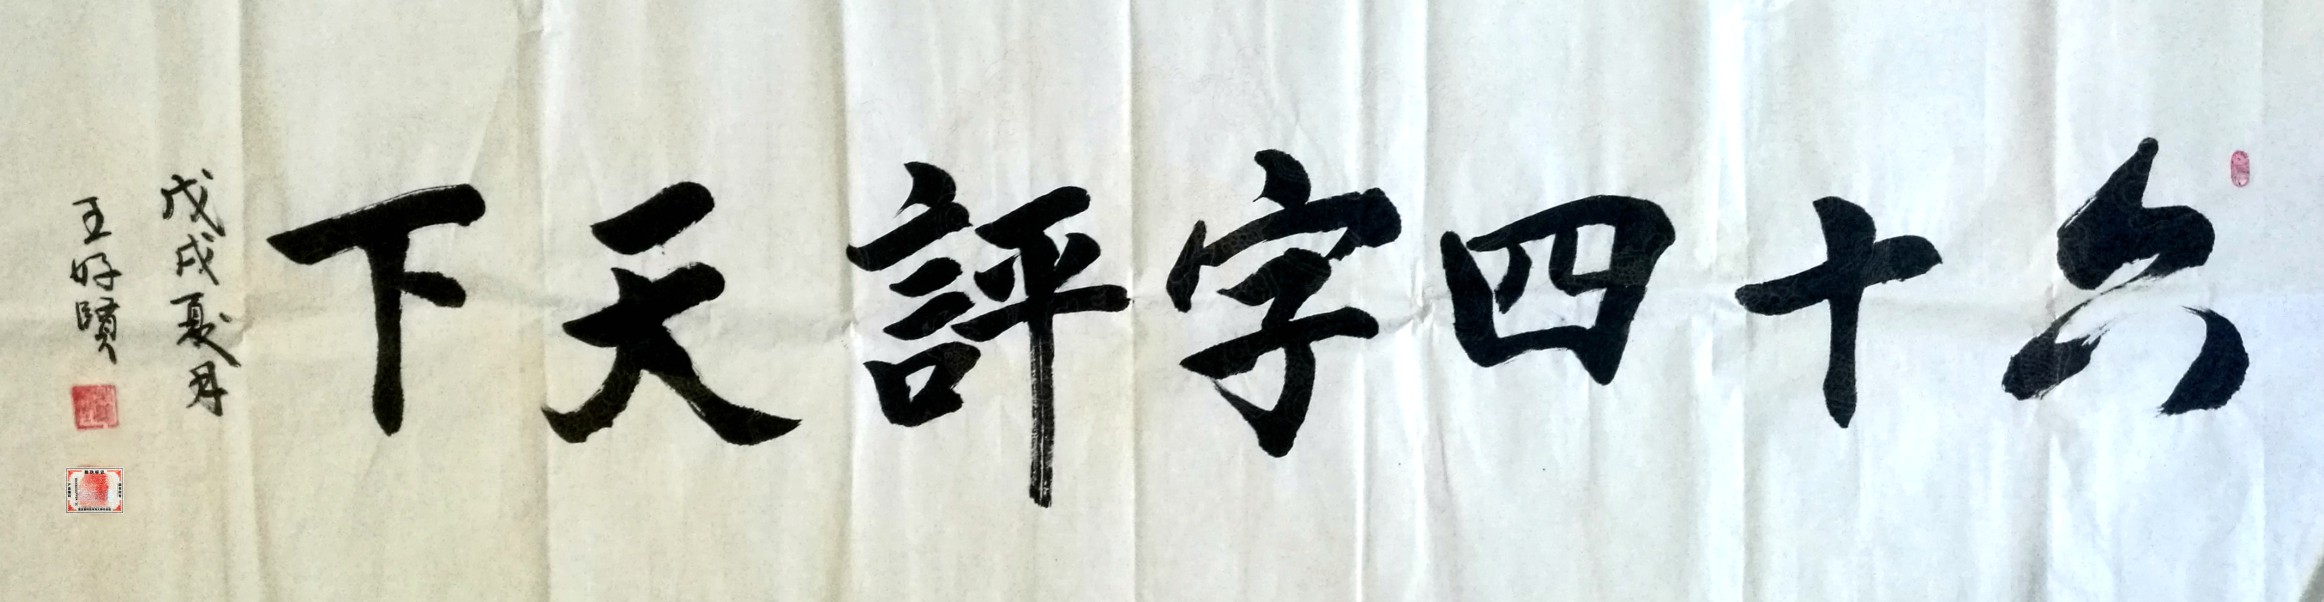 六十四字評天下
戊戌夏月
王好賢